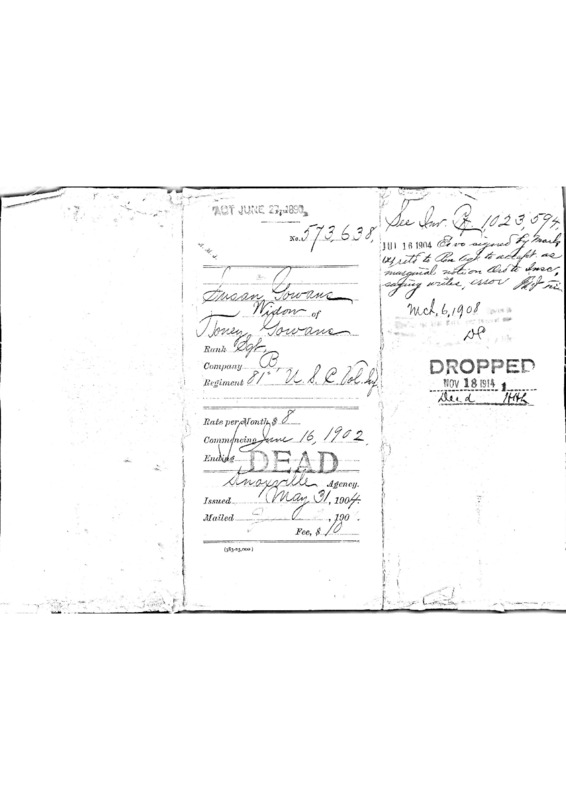 ACT JUNE 27, 1890,
No. 573,638,
Susan Gowans
Widow of
Toney Gowans
Rank Sgt,
Company B,
Regiment 81" U. S. C Vol. Inf
Rate per Month, $ 8
Commencing June 16, 1902.
Ending
DEAD
Knoxville Agency.
Issued May 31, 1904.
Mailed , 190 .
Fee, $ 10
See Inv. 1023,594.
JUL 16 1904 signed by mark
to accept as
marginal
error
Mch, 6, 1908
DROPPED
NOV 18 1914
Dead